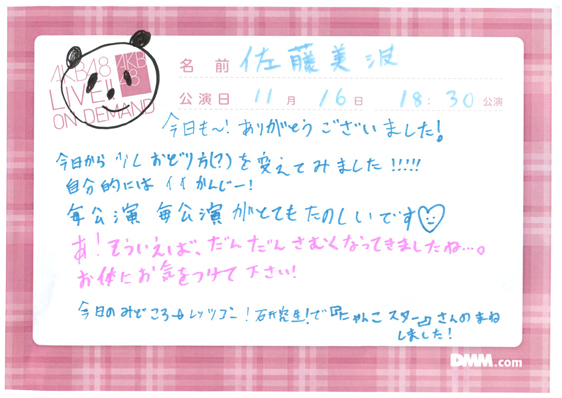 AKB48
LIVE!!
ON DEMAND
AKB
48
名前 佐藤美波
公演日 11月 16日 18:30公演
今日も〜!ありがとうございました!
今日から少しおどり方(?)を変えてみました!!!!!
自分的にはイイかんじー!
毎公演毎公演がとてもたのしいです♡
あ!そういえば、だんだんさむくなってきましたね…。
お体にお気をつけて下さい!
今日のみどころ→レッツゴー!研究生!で『にゃんこスター』さんのまね
しました!
DMM.com